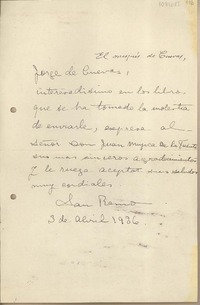 El marqués de Cuevas,
Jorge de Cuevas,
interesadísimo en los libros
que se ha tomado la molestia
de enviarle, expresa al
señor don Juan Mujica de la Fuente
sus mas sinceros agradecimientos
y le ruega aceptar sus saludos
muy cordiales.
San Remo
3 de Abril 1936